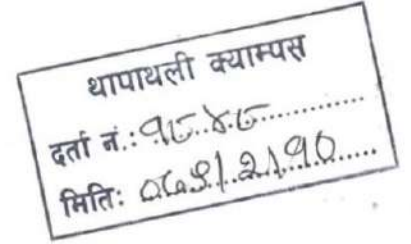 थापाथली क्याम्पस
दर्ता नं.: १८४८
मिति: ०७९/२/१०